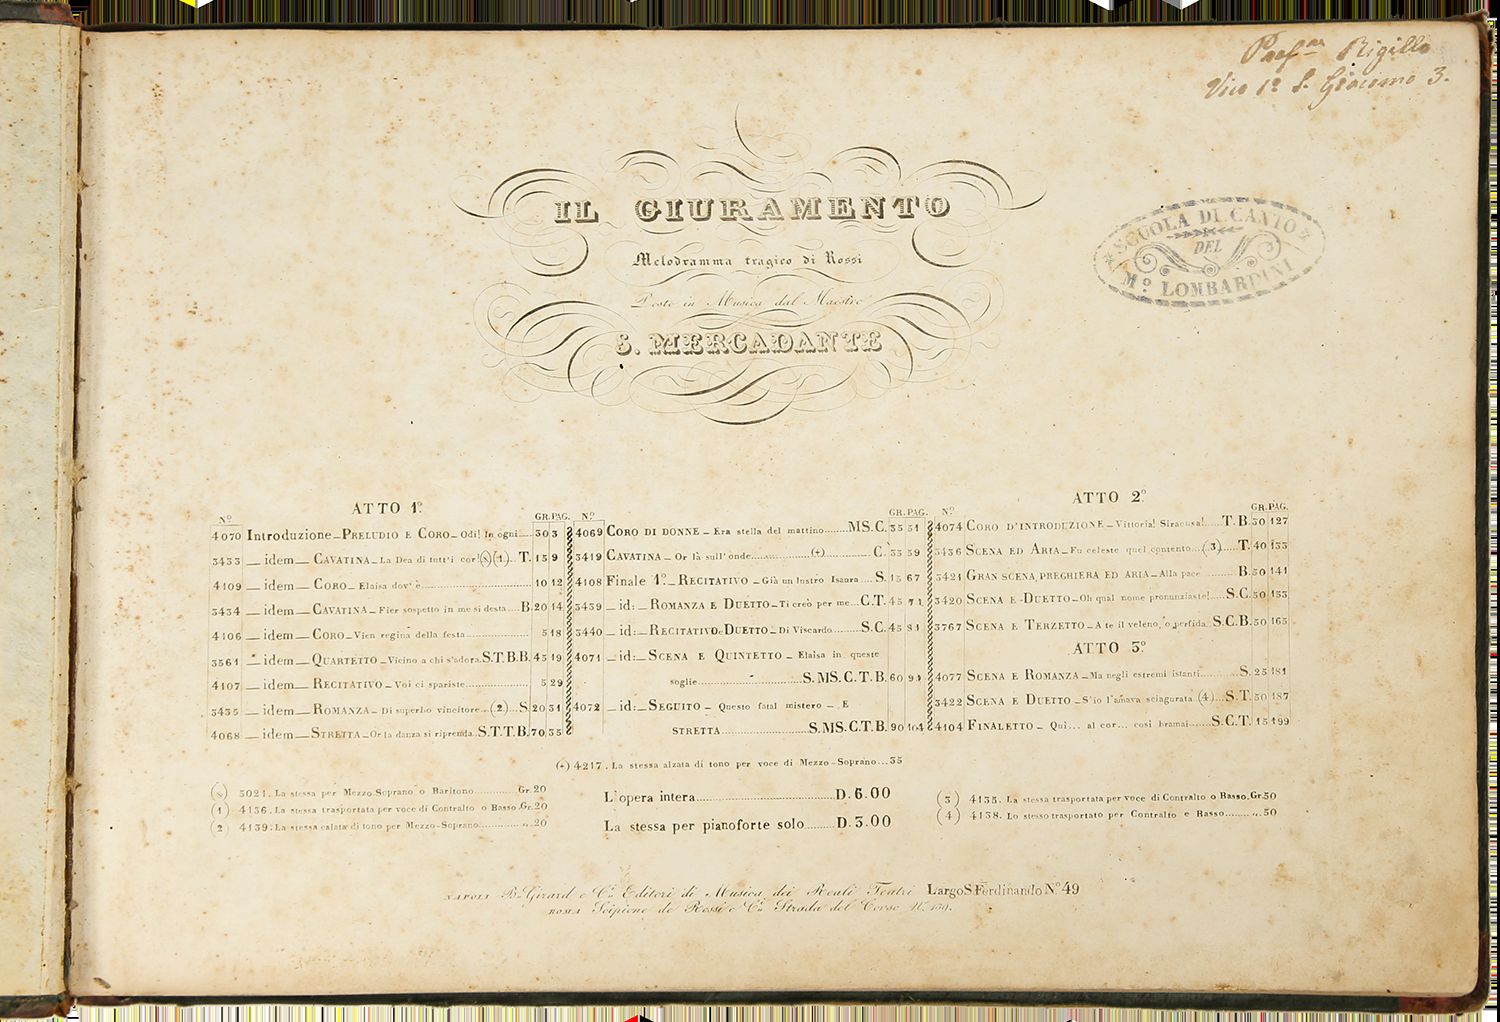 Prof.re Rigillo
Vico 1º S. Giacomo 3.
SCUOLA DI CANTO
DEL
Mº LOMBARDINI
IL GIURAMENTO
Melodramma tragico di Rossi
Posto in Musica dal Maestro
S. MERCADANTE
ATTO 1º.
Nº GR. PAG.
4070 Introduzione_PRELUDIO E CORO_Odi! In ogni.... 30 3
3433 _ idem_ CAVATINA_La Dea di tutt'i cor!(x)(1)... T. 15 9
4109 _ idem_ CORO_Elaisa dov'è.................... 10 12
3434 _ idem_ CAVATINA_Fier sospetto in me si desta....B. 20 14
4106 _ idem_ CORO_Vien regina della festa............... 5 18
3561 _ idem_ QUARTETTO_Vicino a chi s'adora.S.T.B.B. 45 19
4107 _ idem_ RECITATIVO_Voi ci spariste............... 5 29
3435 _ idem_ ROMANZA_Di superbo vincitore...(2)...S. 20 31
4068 _ idem_ STRETTA_Or la danza si riprenda..S.T.T.B. 70 35
Nº GR. PAG.
4069 CORO DI DONNE_Era stella del mattino.......MS.C. 35 51
3419 CAVATINA_Or là sull'onde...............(+)............. C. 35 59
4108 Finale 1º._RECITATIVO_Già un lustro Isaura.... S. 15 67
3439 _ id:_ROMANZA E DUETTO_Ti creò per me...C.T. 45 71
3440 _ id:_RECITATIVO e DUETTO_Di Viscardo.........S.C. 45 81
4071 _ id:_SCENA E QUINTETTO_Elaisa in queste
soglie........................S.MS.C.T.B. 60 91
4072 _ id:_SEGUITO_Questo fatal mistero_ E
STRETTA....................S.MS.C.T.B. 90 104
ATTO 2º.
Nº GR. PAG.
4074 CORO D'INTRODUZIONE_Vittoria! Siracusa!....T.B. 30 127
3436 SCENA ED ARIA_Fu celeste quel contento...(3).....T. 40 133
3421 GRAN SCENA, PREGHIERA ED ARIA_Alla pace..........B. 50 141
3420 SCENA E DUETTO_Oh qual nome pronunziaste!....S.C. 50 153
3767 SCENA E TERZETTO_A te il veleno, o perfida..S.C.B. 50 165
ATTO 3º.
4077 SCENA E ROMANZA_Ma negli estremi istanti..........S. 25 181
3422 SCENA E DUETTO_S'io l'amava sciagurata (4)...S.T. 50 187
4104 FINALETTO_Qui... al cor... così bramai.....S.C.T. 15 199
(+) 4217. La stessa alzata di tono per voce di Mezzo-Soprano...35
(x) 3021. La stessa per Mezzo-Soprano o Baritono............Gr. 20
(1) 4136. La stessa trasportata per voce di Contralto o Basso.Gr. 20
(2) 4139. La stessa calata di tono per Mezzo-Soprano............ „. 20
L'opera intera..........................D. 6.00
La stessa per pianoforte solo.........D. 3.00
(3) 4135. La stessa trasportata per voce di Contralto o Basso.Gr. 50
(4) 4138. Lo stesso trasportato per Contralto e Basso........ „. 50
NAPOLI B. Girard e C.i Editori di Musica dei Reali Teatri Largo S. Ferdinando Nº 49
ROMA Scipione de Rossi e C.i Strada del Corso Nº 139.